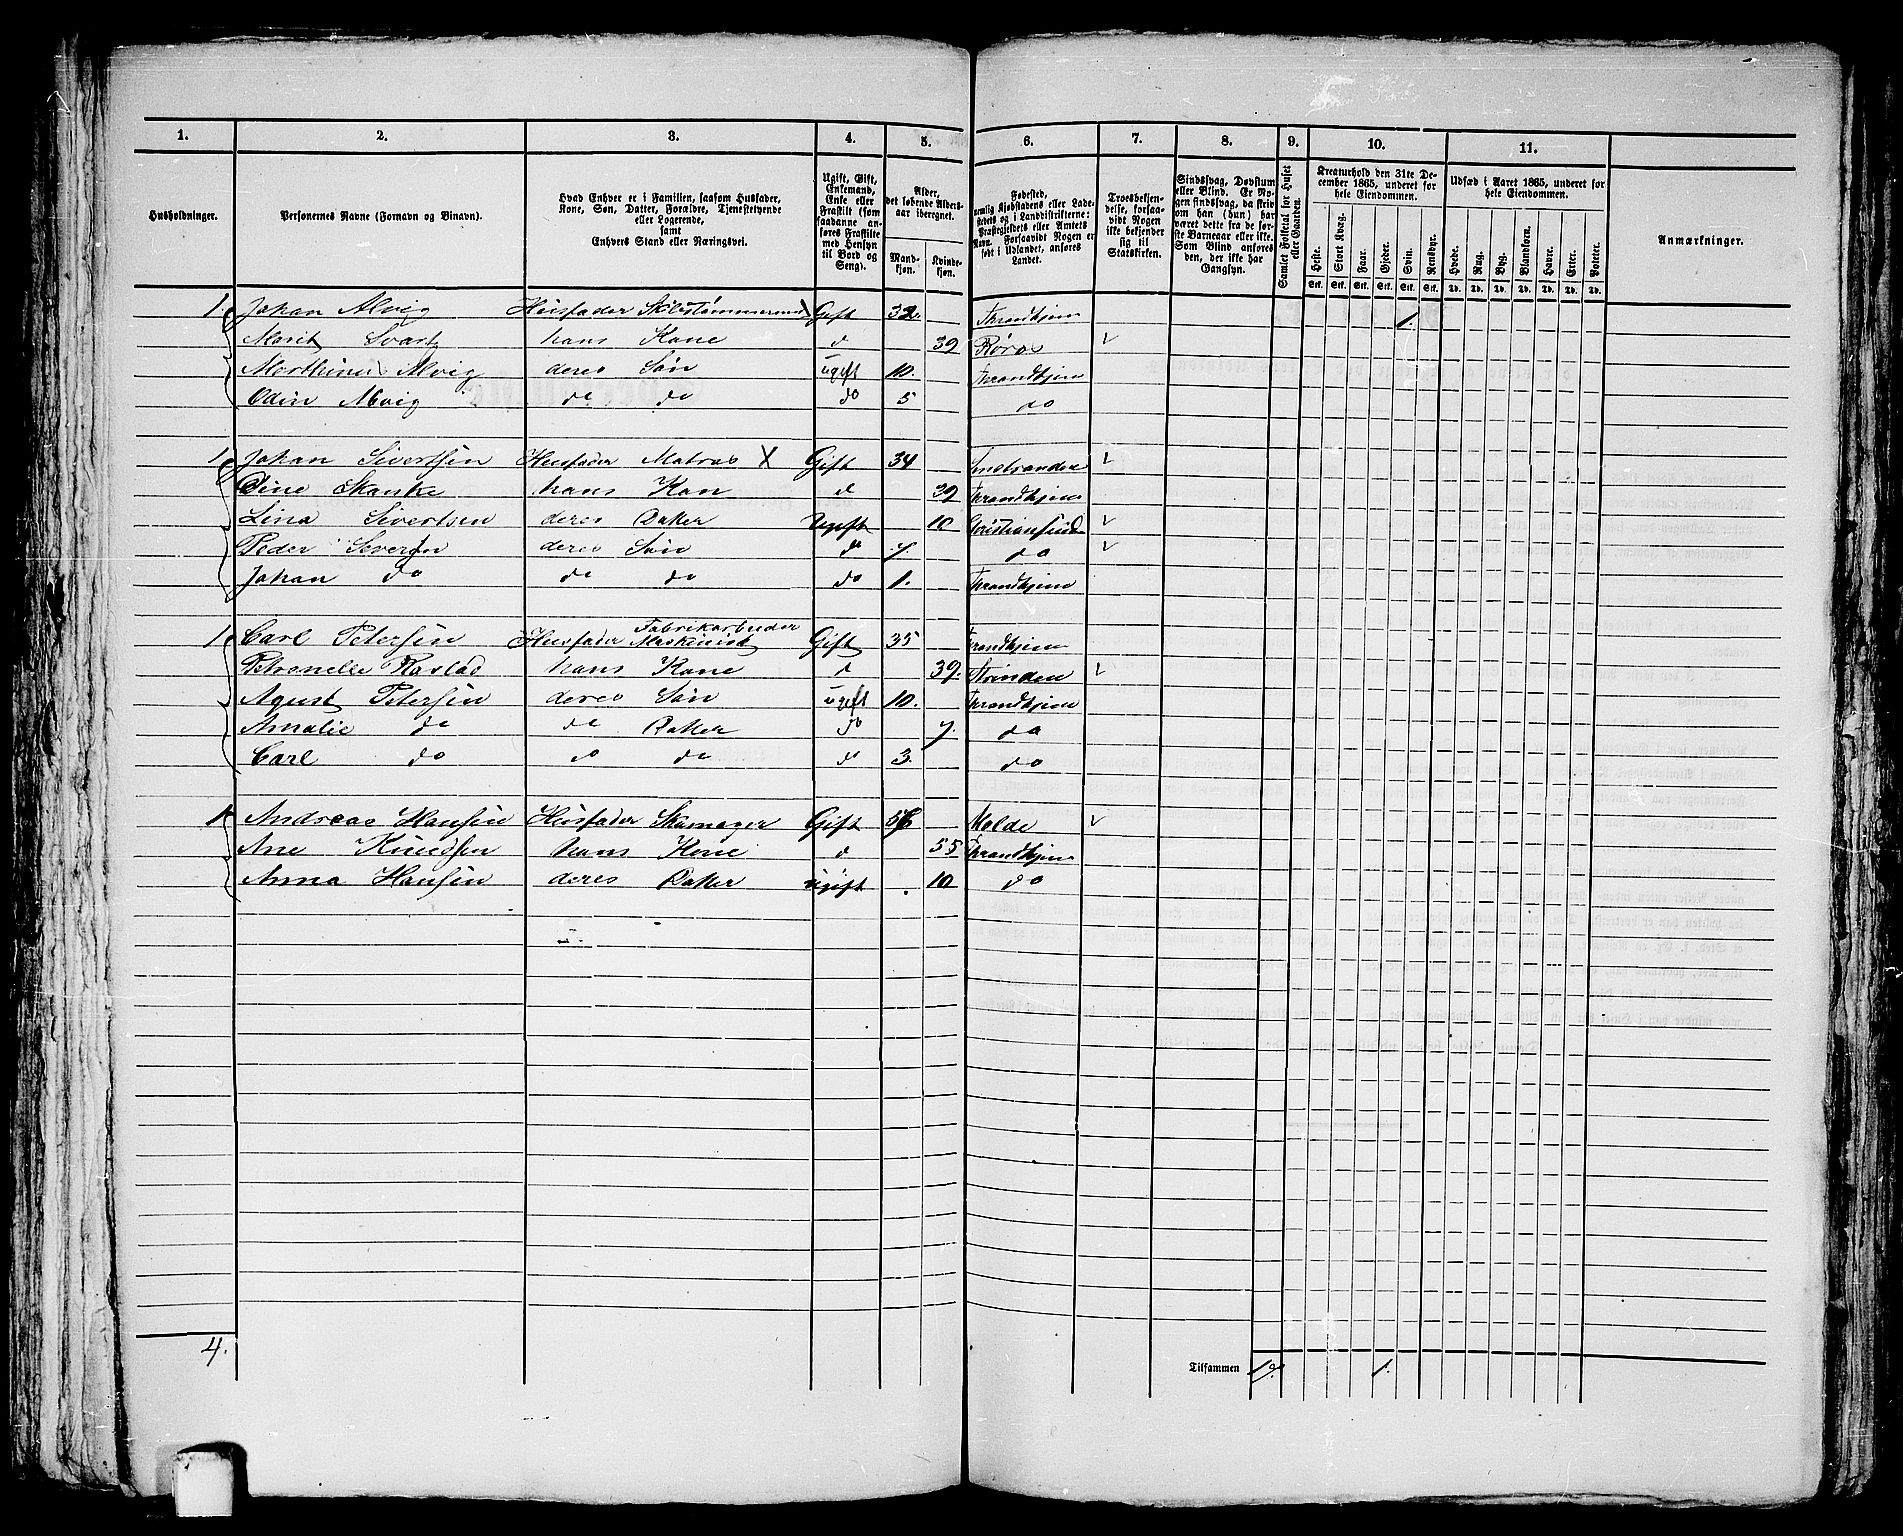 1. 2. 3. 4. 5. 6. 7. 8. 9. 10. 11.
Husholdninger.
Personernes Navne (Fornavn og Binavn).
Hvad Enhver er i Familien, saasom Husfader, Kone, Søn, Datter, Forældre, Tjenestetyende eller Logerende, samt Enhvers Stand eller Næringsvei.
Ugift, Gift, Enkemand, Enke eller Fraskilt (som saadanne anføres Fraskilte med Hensyn til Bord og Seng).
Alder, det løbende Aldersaar iberegnet.
Mandkjøn. Kvindekjøn.
Fødested, nemlig Kjøbstadens eller Ladestedets og i Landdistrikterne: Præstegjeldets eller Amtets Navn. Forsaavidt Nogen er født i Udlandet, anføres Landet.
Troesbekjendelse, forsaavidt Nogen ikke bekjender sig til Statskirken.
Sindssvag, Døvstum eller Blind. Er Nogen sindssvag, da skrives om han (hun) har været dette fra de første Barneaar eller ikke. Som Blind anføres den, der ikke har Gangsyn.
Samlet Folketal for Huset eller Gaarden.
Kreaturhold den 31te December 1865, underet for hele Eiendommen.
Heste. Stort Kvæg. Faar. Gjeder. Svin. Rensdyr.
Udsæd i Aaret 1865, underet for hele Eiendommen.
Hvede. Rug. Byg. Blandkorn. Havre. Erter. Poteter.
Anmærkninger.
Stk. Stk. Stk. Stk. Stk. Stk. Td. Td. Td. Td. Td. Td. Td.
1. Johan Alvig Husfader Gift 32. Throndhjem 1.
Marit Svartz hans Kone d 39 Røros
Marthinus Alvig deres Søn ugift 10. Throndhjem
Odin Alvig do do do 5 do
1. Johan Sivertsen Husfader Matros X Gift 34
Skanke hans Kon d 39 Throndhjem
Lina Sivertsen deres Datter Ugift 10 Christiansund
Peder deres Søn do 7 do
Johan do do do do 1. Throndhjem
1. Carl Petersen Husfader Fabrikarbeider Maskinist Gift 35 Throndhjem
Petronelle hans Kone d 39. Strinden
Agust Petersen deres Søn ugift 10. Throndhjem
Amalie do do Datter do 7. do
Carl do do do do 3. do
1. Andreas Hansen Husfader Skomager Gift Molde
Ane Knudsen hans Kone d 55 Throndhjem
Anna Hansen deres Datter ugift 10 do
4.
Tilsammen 17. 1.